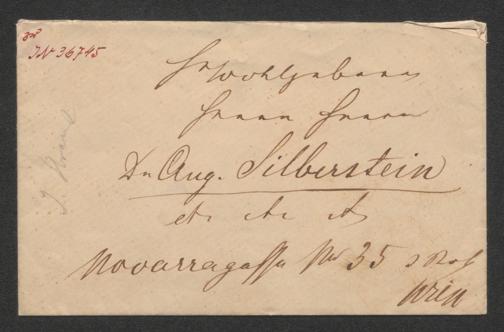 zu
IN 36745
Sr Wohlgeboren
Herrn Herrn
Dr Aug. Silberstein
etc etc etc
Novarragasse Nr 35
Wien